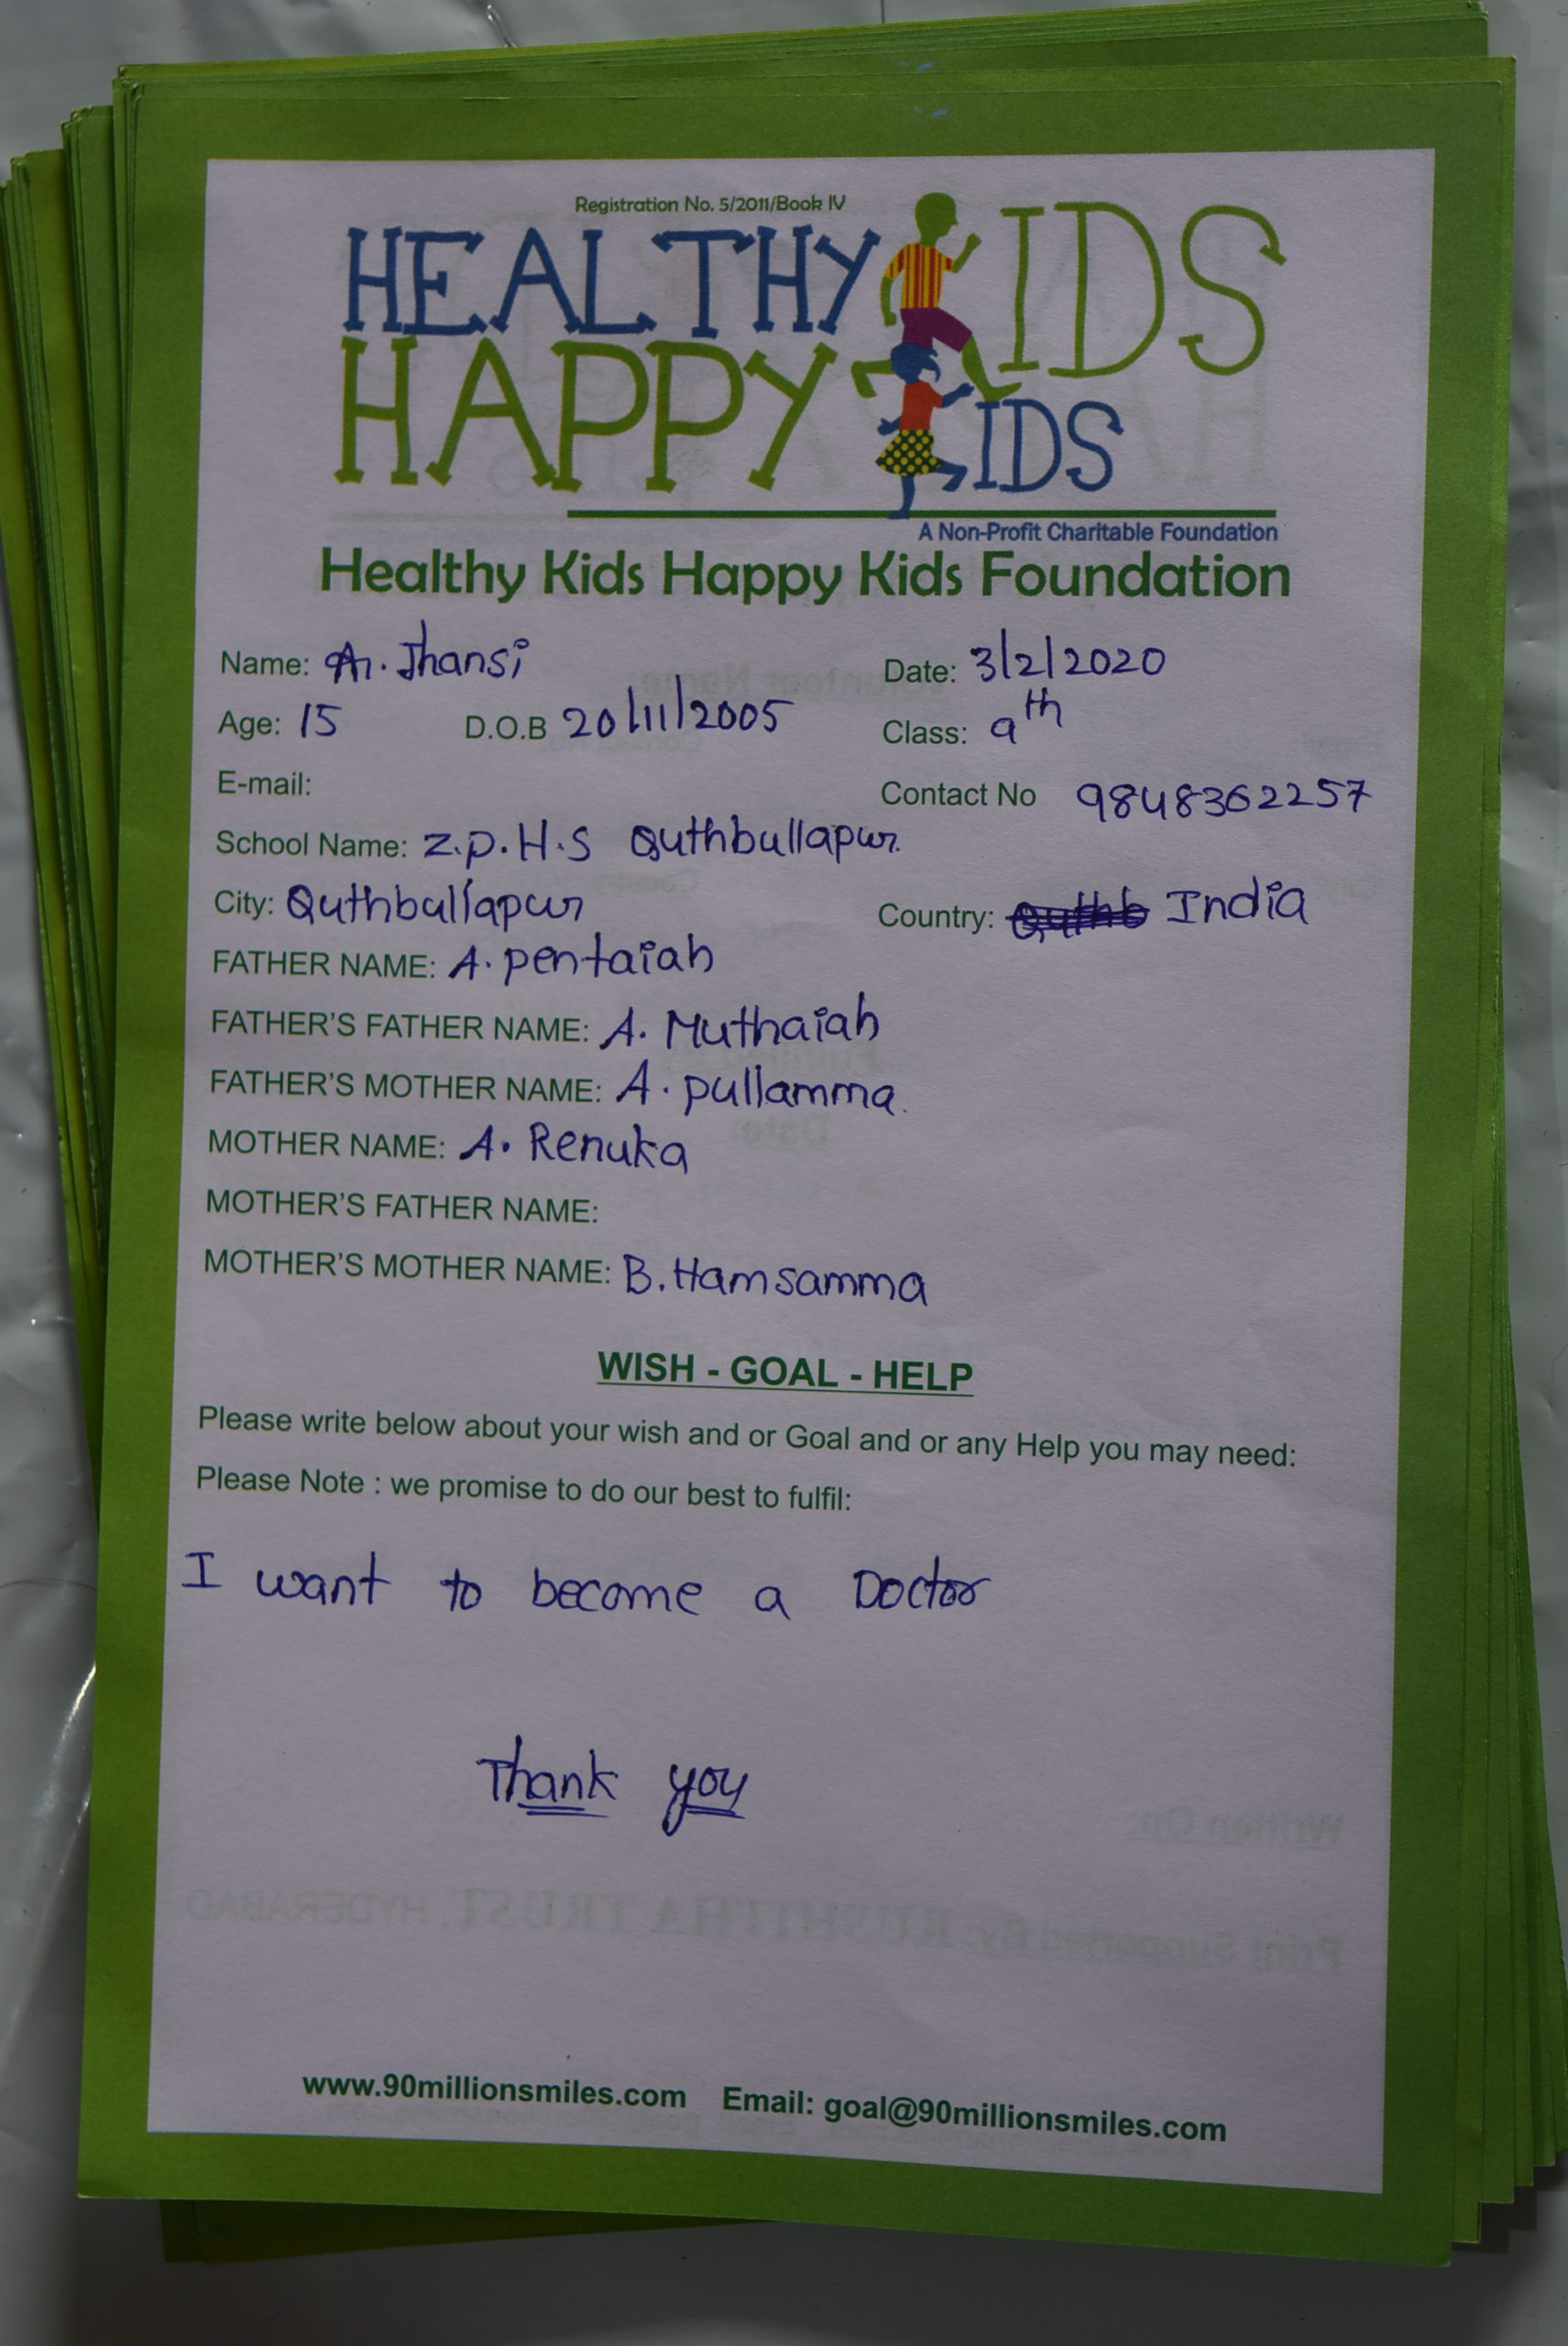 Registration No. 5/2011/Book IV
HEALTHY KIDS
HAPPY KIDS
A Non-Profit Charitable Foundation
Healthy Kids Happy Kids Foundation
Name: A. Jhansi Date: 3/2/2020
Age: 15 D.O.B 20/11/2005 Class: 9th
E-mail: Contact No 9848362257
School Name: Z.p.H.S Quthbullapur
City: Quthbullapur Country: Quthb India
FATHER NAME: A. pentaiah
FATHER'S FATHER NAME: A. Muthaiah
FATHER'S MOTHER NAME: A. pullamma.
MOTHER NAME: A. Renuka
MOTHER'S FATHER NAME:
MOTHER'S MOTHER NAME: B. Hamsamma
WISH - GOAL - HELP
Please write below about your wish and or Goal and or any Help you may need:
Please Note : we promise to do our best to fulfil:
I want to become a Doctor
Thank you
Written On:
Print Supported By: RUSHITHA TRUST, HYDERABAD
www.90millionsmiles.com Email: goal@90millionsmiles.com